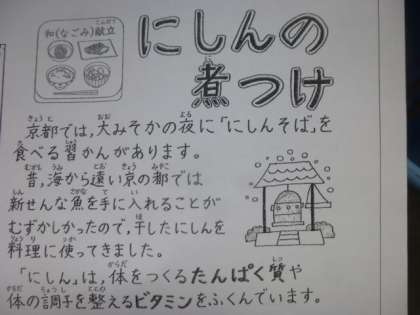 和(なごみ)献立
にしんの
煮つけ
京都では,大みそかの夜に「にしんそば」を
食べる習かんがあります。
昔,海から遠い京の都では
新せんな魚を手に入れることが
むずかしかったので,干したにしんを
料理に使ってきました。
「にしん」は,体をつくるたんぱく質や
体の調子を整えるビタミンをふくんでいます。